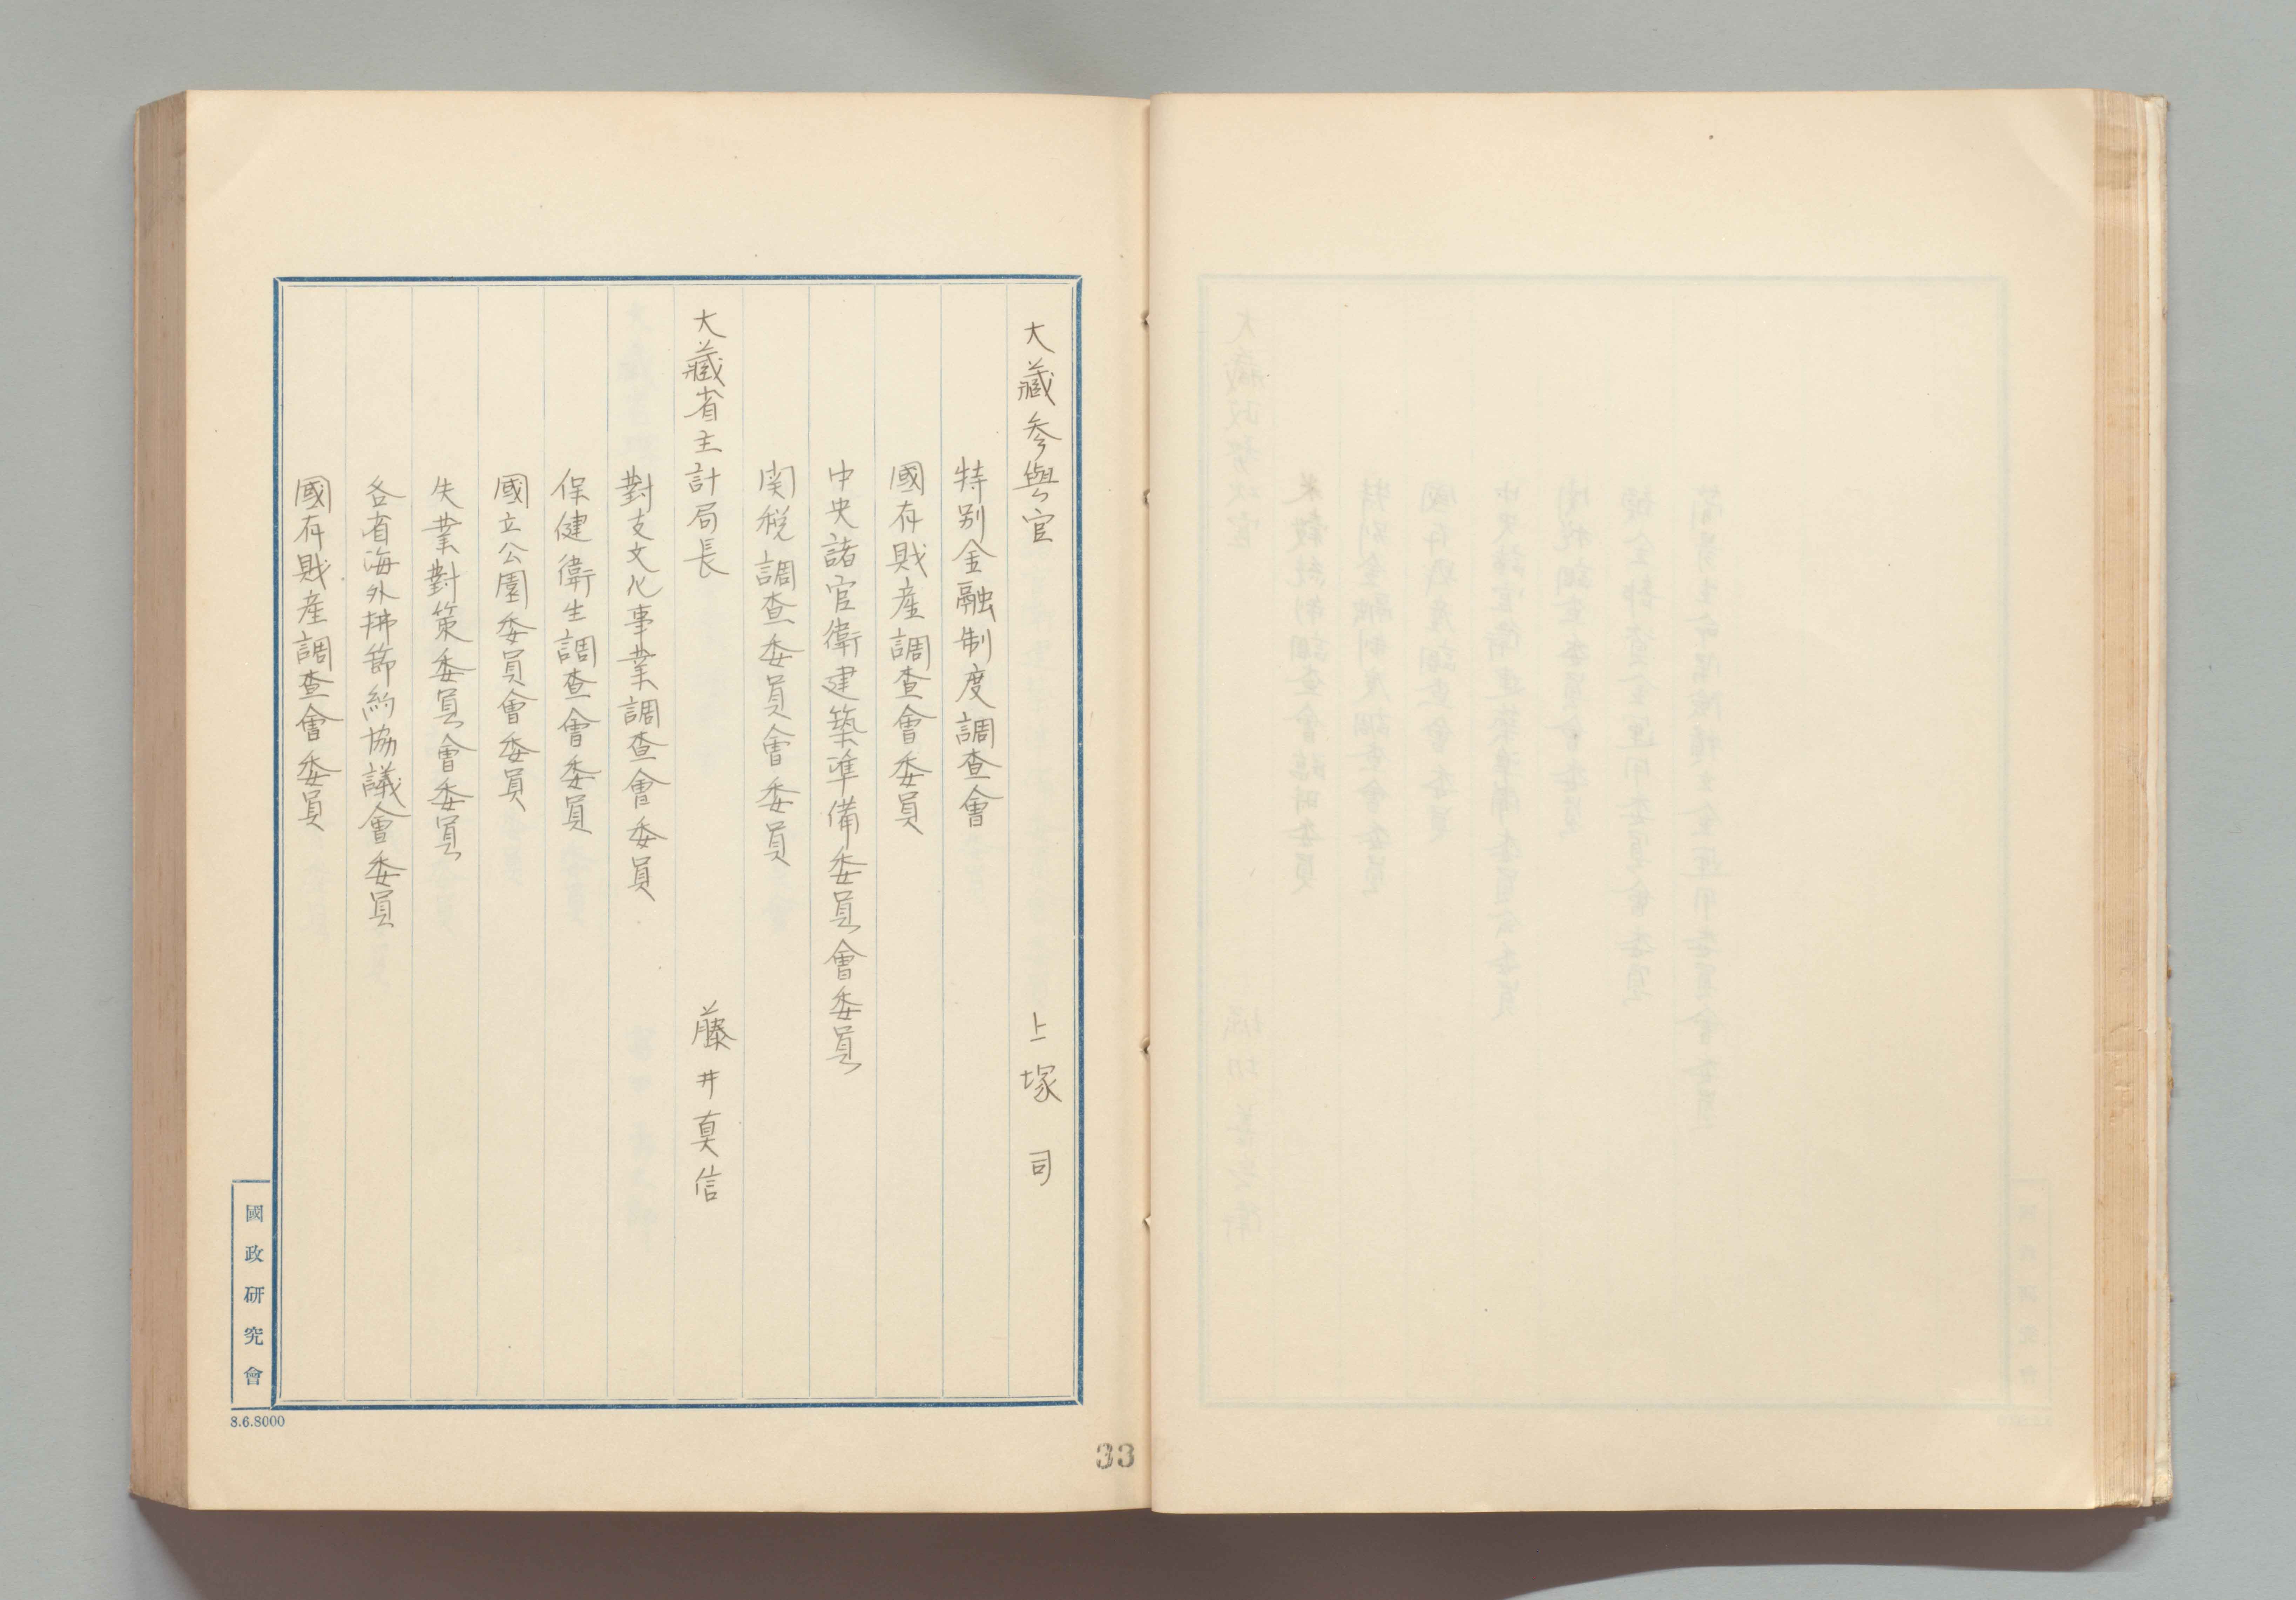 大藏参與官　上塚　司
特別金融制度調査會
國有財産調査會委員
中央諸官衙建築準備委員會委員
関税調査委員會委員
大藏省主計局長　藤井真信
對支文化事業調査會委員
保健衛生調査會委員
國立公園委員會委員
失業對策委員會委員
各省海外拂節約協議會委員
國有財産調査會委員
國政研究會
8.6.8000
33